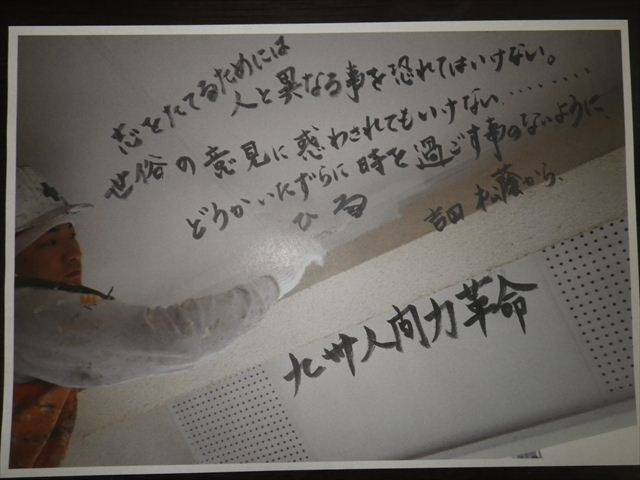 志をたてるためには
人と異なる事を恐れてはいけない。
世俗の意見に惑わされてもいけない………
どうかいたずらに時を過ごす事のないように、
吉田松蔭から、
九州人間力革命